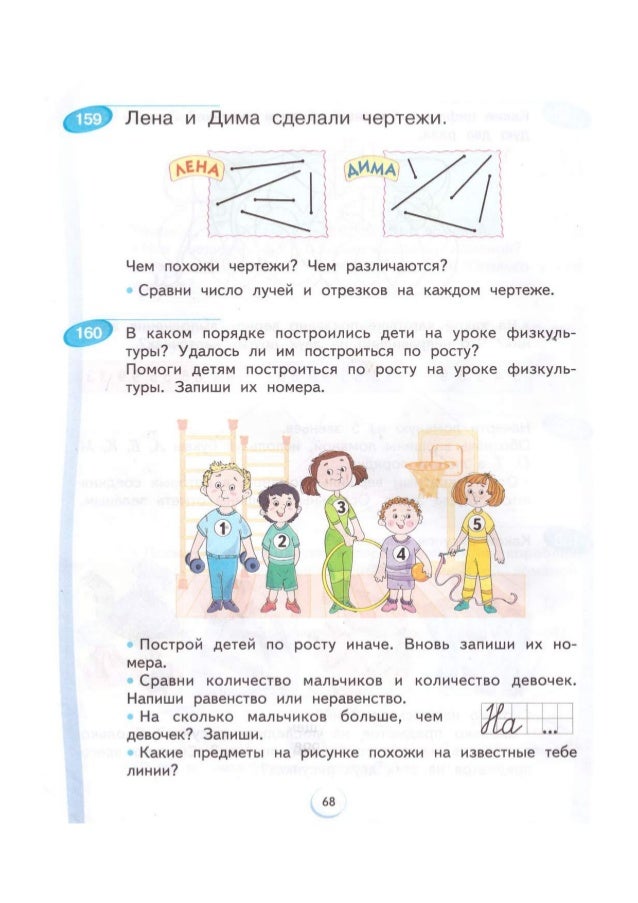 159 Лена и Дима сделали чертежи.
ЛЕНА ДИМА
Чем похожи чертежи? Чем различаются?
• Сравни число лучей и отрезков на каждом чертеже.
160 В каком порядке построились дети на уроке физкуль-
туры? Удалось ли им построиться по росту?
Помоги детям построиться по росту на уроке физкуль-
туры. Запиши их номера.
1 2 3 4 5
• Построй детей по росту иначе. Вновь запиши их но-
мера.
• Сравни количество мальчиков и количество девочек.
Напиши равенство или неравенство.
• На сколько мальчиков больше, чем
девочек? Запиши.
На ...
• Какие предметы на рисунке похожи на известные тебе
линии?
68